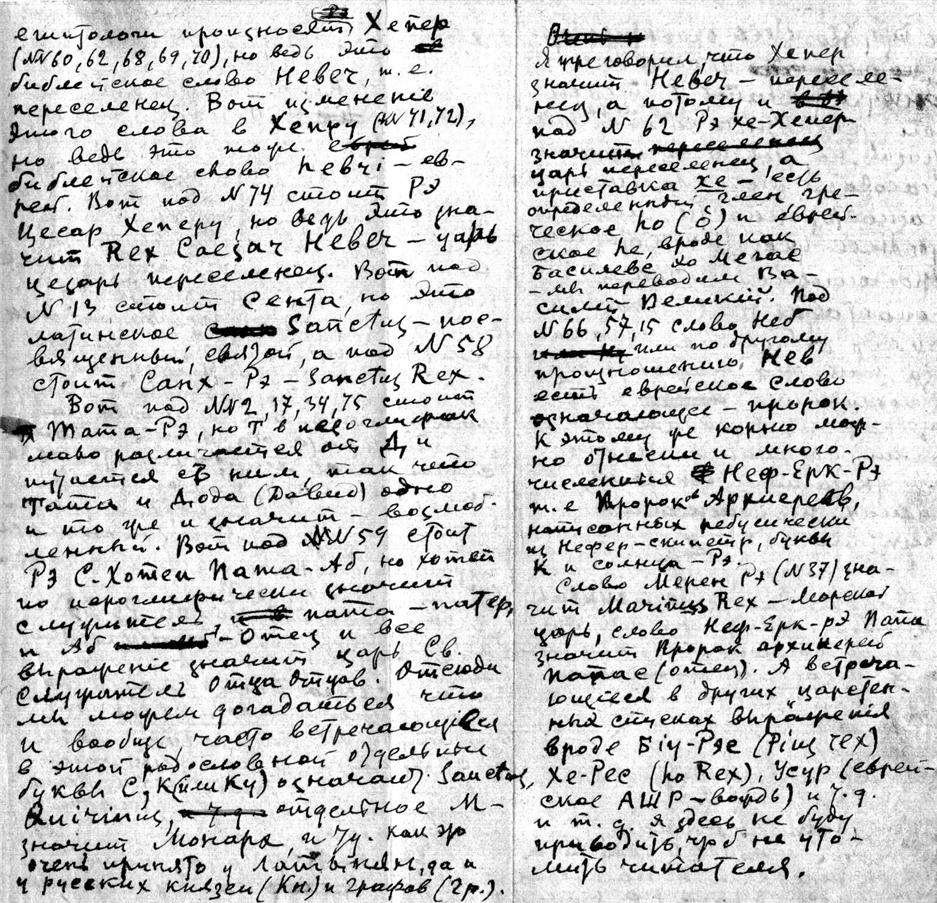 египтологи произносят Хепер
(№№60, 62, 68, 69, 70), но ведь это
библейское слово Невеч, т. е.
переселенец. Вот изменение
этого слова в Хепру (№№ 71, 72),
но ведь это тоже
библейское слово hевчi – ев-
рей. Вот под N 74 стоит Рэ
Цесар Хеперу, но ведь это зна-
чит Rex Caesar Невеч – царь
цезарь переселенец. Вот под
N 13 стоит Сента, но это
латинское Sanctus – пос-
вященный, святой, а под N 58
стоит Санх – Рэ – Sanctus Rex.
Вот под NN2, 17, 34, 75 стоит
Тата-Рэ, но Т в иероглифах
мало различается от Д и
путается с ним, так что
Тата и Дода (Давид) одно
и то же и значит – возлюб-
ленный. Вот под NN 59 стоит
Рэ С. Хотеп Пата-Аб, но хотеп
по иероглифически значит
служитель, пата – патер,
и Аб – Отец и все
выражение значит царь Св.
Служитель Отца Отцов. Отсюда
мы можем догадаться что
и вообще, часто встречающиеся
в этой родословной отдельные
буквы С, К (или Ку) означают Sanctus,
Quirinus, отдельное М –
значит Монарх, и т. д. как это
очень принято у Латынян, да и
у русских князей (Кн.) и графов (Гр.).
Я уже говорил, что Хепер
значит Невеч – переселе-
нец, а потому и
под N 62 Рэ хе-Хепер
значит переселенец
царь переселенец, а
приставка хе – есть
определенный член гре-
ческое ho (ὁ) и еврей-
ское he, вроде как
Басилевс хо Мегас
– мы переводим Ва-
силий Великий. Под
N 66, 57, 15 слово Неб
или по другому
произношению Нев
есть еврейское слово
означающее – пророк.
К этому же корню мож-
но отнести и много-
численныя Неф-Ерк-Рэ
т. е. Пророков Архиереев,
написанных ребусически
из Нефер-скипетр, буквы
К и солнца – Рэ.
Слово Мерен Рэ (N 37) зна-
чит Marinus Rex – Морской
царь, слово Неф-Ерк-рэ Папа
значит Пророк архиерей
папас (отец). А встреча-
ющиеся в других царствен-
ных списках выражения
вроде Бiу-Рэс (Pius rex)
Хе-Рес (ho Rex), Усур (еврей-
ское АШР – вождь) и т. д.
и т. д. я здесь не буду
приводить, чтоб не уто-
мить читателя.